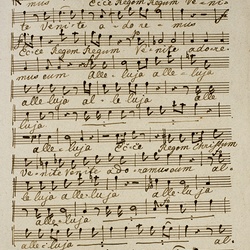 mus Ecce Regem Regum Veni-
te Venite adore- mus
Ecce Regem Regum Venite adore-
mus cum alle- luja alle-
alleluja alleluja alle
luja
alleluja Ecce Regem Christum
Venite Venite adoramus cum al-
leluja alleluja al
luja